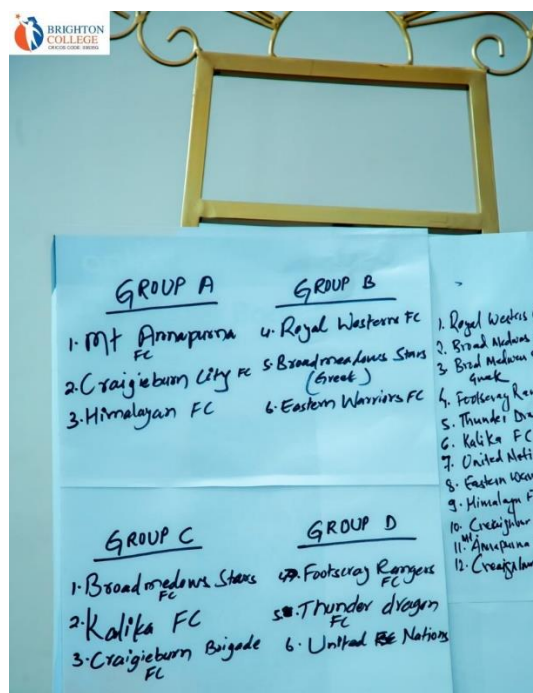 BRIGHTON
COLLEGE
GROUP A
1. Mt Annapurna
FC
2. Craigieburn City FC
3. Himalayan FC
GROUP B
4. Royal Western FC
5. Broadmeadows Stars
(Greek)
6. Eastern Warriors FC
GROUP C
1. Broadmedows Stars
FC
2. Kalika FC
3. Craigieburn Brigade
FC
GROUP D
4. Footscray Rangers
FC
5. Thunder dragon
FC
6. United Nations
1. Royal
2. Broad
3.
4. Footscray
5. Thunder
6. Kalika FC
7. United
8. Eastern
9.
10.
11. Annapurna
12.